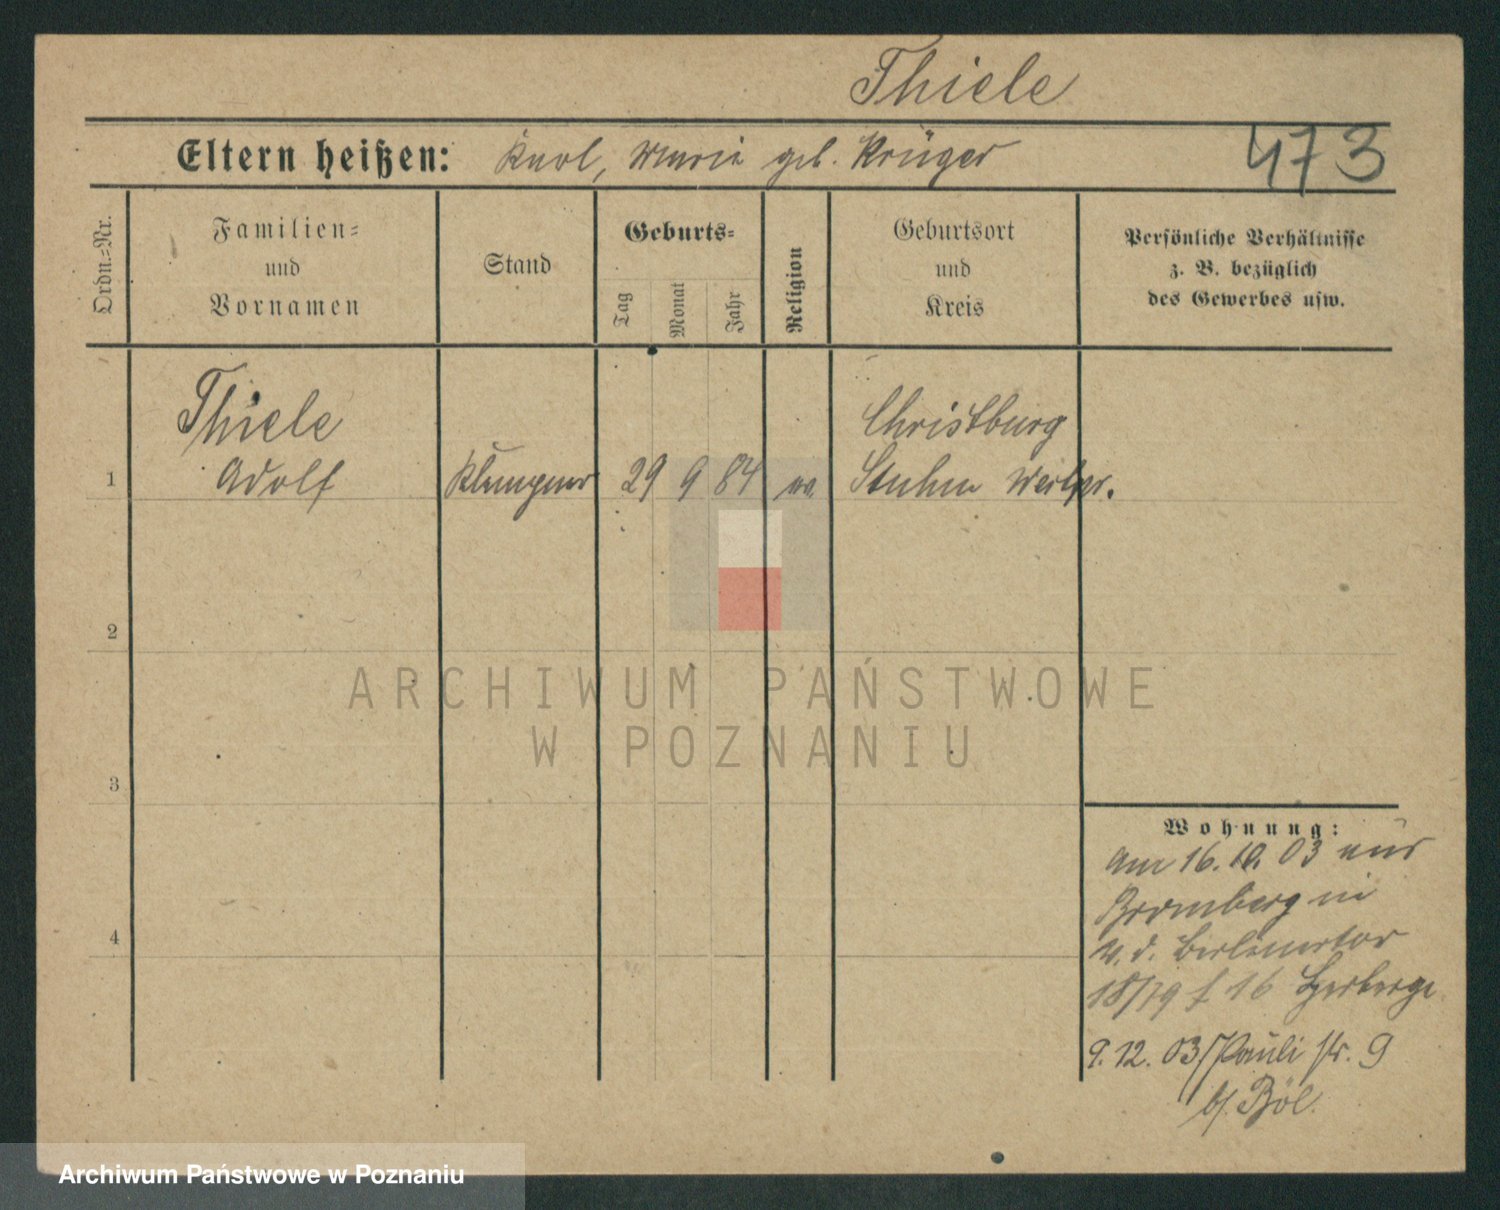 Thiele
Eltern heißen: Karl, Marie geb. Krüger
473
Ordn.=Nr.
Familien=
und
Vornamen
Stand
Geburts=
Tag
Monat
Jahr
Religion
Geburtsort
und
Kreis
Persönliche Verhältnisse
z. B. bezüglich
des Gewerbes usw.
Thiele
Adolf
1
Klempner
29 9 84
Christburg
Stuhm Westpr.
2
3
4
Wohnung:
am 16. 10. 03 aus
Bromberg in
v. d. Berlinertor
18/19 f 16 Herberge
9. 12. 03 / Pauli str. 9
b/
ARCHIWUM PAŃSTWOWE
W POZNANIU
Archiwum Państwowe w Poznaniu